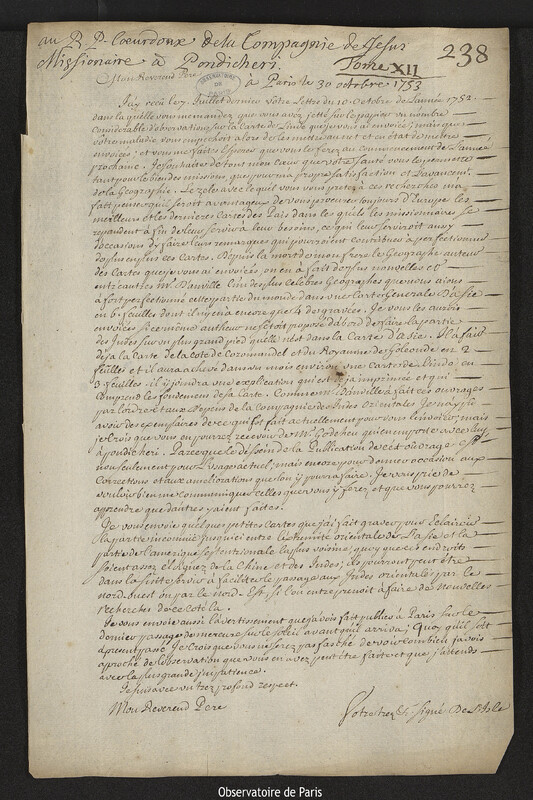 au R P. Cœurdoux de la Compagnie de Jesus
238
Missionaire à Pondicheri.
Tome XII
Mon Reverend Pere
OBSERVATOIRE DE PARIS
à Paris le 30 octobre 1753
J'ay receu le 7 Juillet dernier votre Lettre du 10 Octobre de l'année 1752.
dans laquelle vous me mandez que vous avez jetté sur le papier un nombre
considerable d'observations sur la Carte de l'Inde que je vous ai envoiée; mais que
votre maladie vous empechoit alors de les mettre au net et en état de m'etre
envoiées; et vous me faites esperer que vous le ferez au commencement de l'année
prochaine. Je souhaite de tout mon cœur que votre santé vous le permette
tant pour le bien des missions, que pour ma propre satisfaction et l'avancemt.
de la Geographie. Le zele avec lequel vous vous pretez à ces recherches m'a
fait penser qu'il seroit avantageux de vous procurer toujours d'Europe les
meilleurs et les dernieres Cartes des Païs dans les quels les missionaires se
repandent à fin de leur servir à leur besoins, ce qui leur serviroit aussy
d'occasion d'y faire leurs remarques qui pourroient contribuer à perfectionner
de plus en plus ces Cartes. Depuis la mort de mon frere le Geographe auteur
des Cartes que je vous ai envoiées, on en a fait de plus nouvelles et
entre autres Mr. Danville l'un des plus celebres Geographes que nous aions
a fort perfectionné cette partie du monde dans une Carte Generale d'Asie
en 6 feuilles dont il n'y en a encore que 4 de gravées. Je vous les aurois
envoiées si ce même autheur ne s'etoit proposé d'abord de faire la partie
des Indes sur un plus grand pied qu'elle n'est dans la Carte d'Asie. Il a fait
deja la Carte de la Cote de Coromandel et du Royaume de Golconde en 2
feuilles et il aura achevé dans un mois environ une Carte de l'Inde en
3 feuilles. il y joindra une explication qui est deja imprimée et qui
comprend les fondemens de sa Carte. Comme Mr. Danville a fait ces ouvrages
par l'ordre et aux depens de la Compagnie des Indes Orientales Je n'ay pû
avoir des exemplaires de ce qui est fait actuellement pour vous l'envoier; mais
je crois que vous en pourrez recevoir de Mr. Godeheu qui en emporte avec luy
à pondicheri. Parceque le dessein de la Publication de cet ouvrage est
non seulement pour l'usage actuel, mais encore pour donner occasion aux
Corrections et aux ameliorations que l'on y pourra faire. Je vous prie de
vouloir bien me communiquer celles que vous y ferez et que vous pourrez
apprendre que d'autres y aient faites.
Je vous envoie quelques petites Cartes que j'ai fait graver pour Eclaircir
la partie inconnue jusqu'ici entre l'extremité orientale de l'Asie et la
partie de l'amerique septentrionale la plus voisine; quoy que ces endroits
soient assez eloignez de la Chine et des Indes; ils pourront peut être
dans la suite servir à faciliter le passage aux Indes orientales par le
nord-ouest ou par le Nord-Est, si l'on entreprenoit à faire de Nouvelles
recherches de ce coté la.
Je vous envoie aussi l'avertissement que j'avois fait publier à Paris sur le
dernier passage de mercure sur le soleil avant qu'il arriva; Quoy qu'il soit
à present passé Je crois que vous ne serez pas faché de voir combien j'avois
aproché de l'observation que vous en avez peut etre faite et que j'attends
avec la plus grande impatience.
Je suis avec un tres profond respect.
Mon Reverend Pere
Votre tres &c. signé De L'Isle
Observatoire de Paris